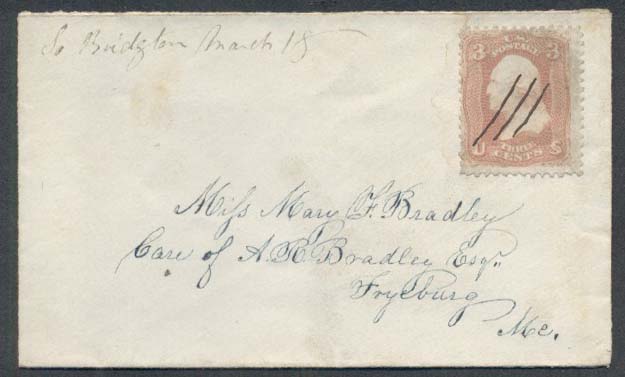 So Bridgton March 18
3 U.S. POSTAGE 3
U THREE CENTS S
Miss Mary F. Bradley
Care of A. R. Bradley Esqr.
Fryeburg
Me.